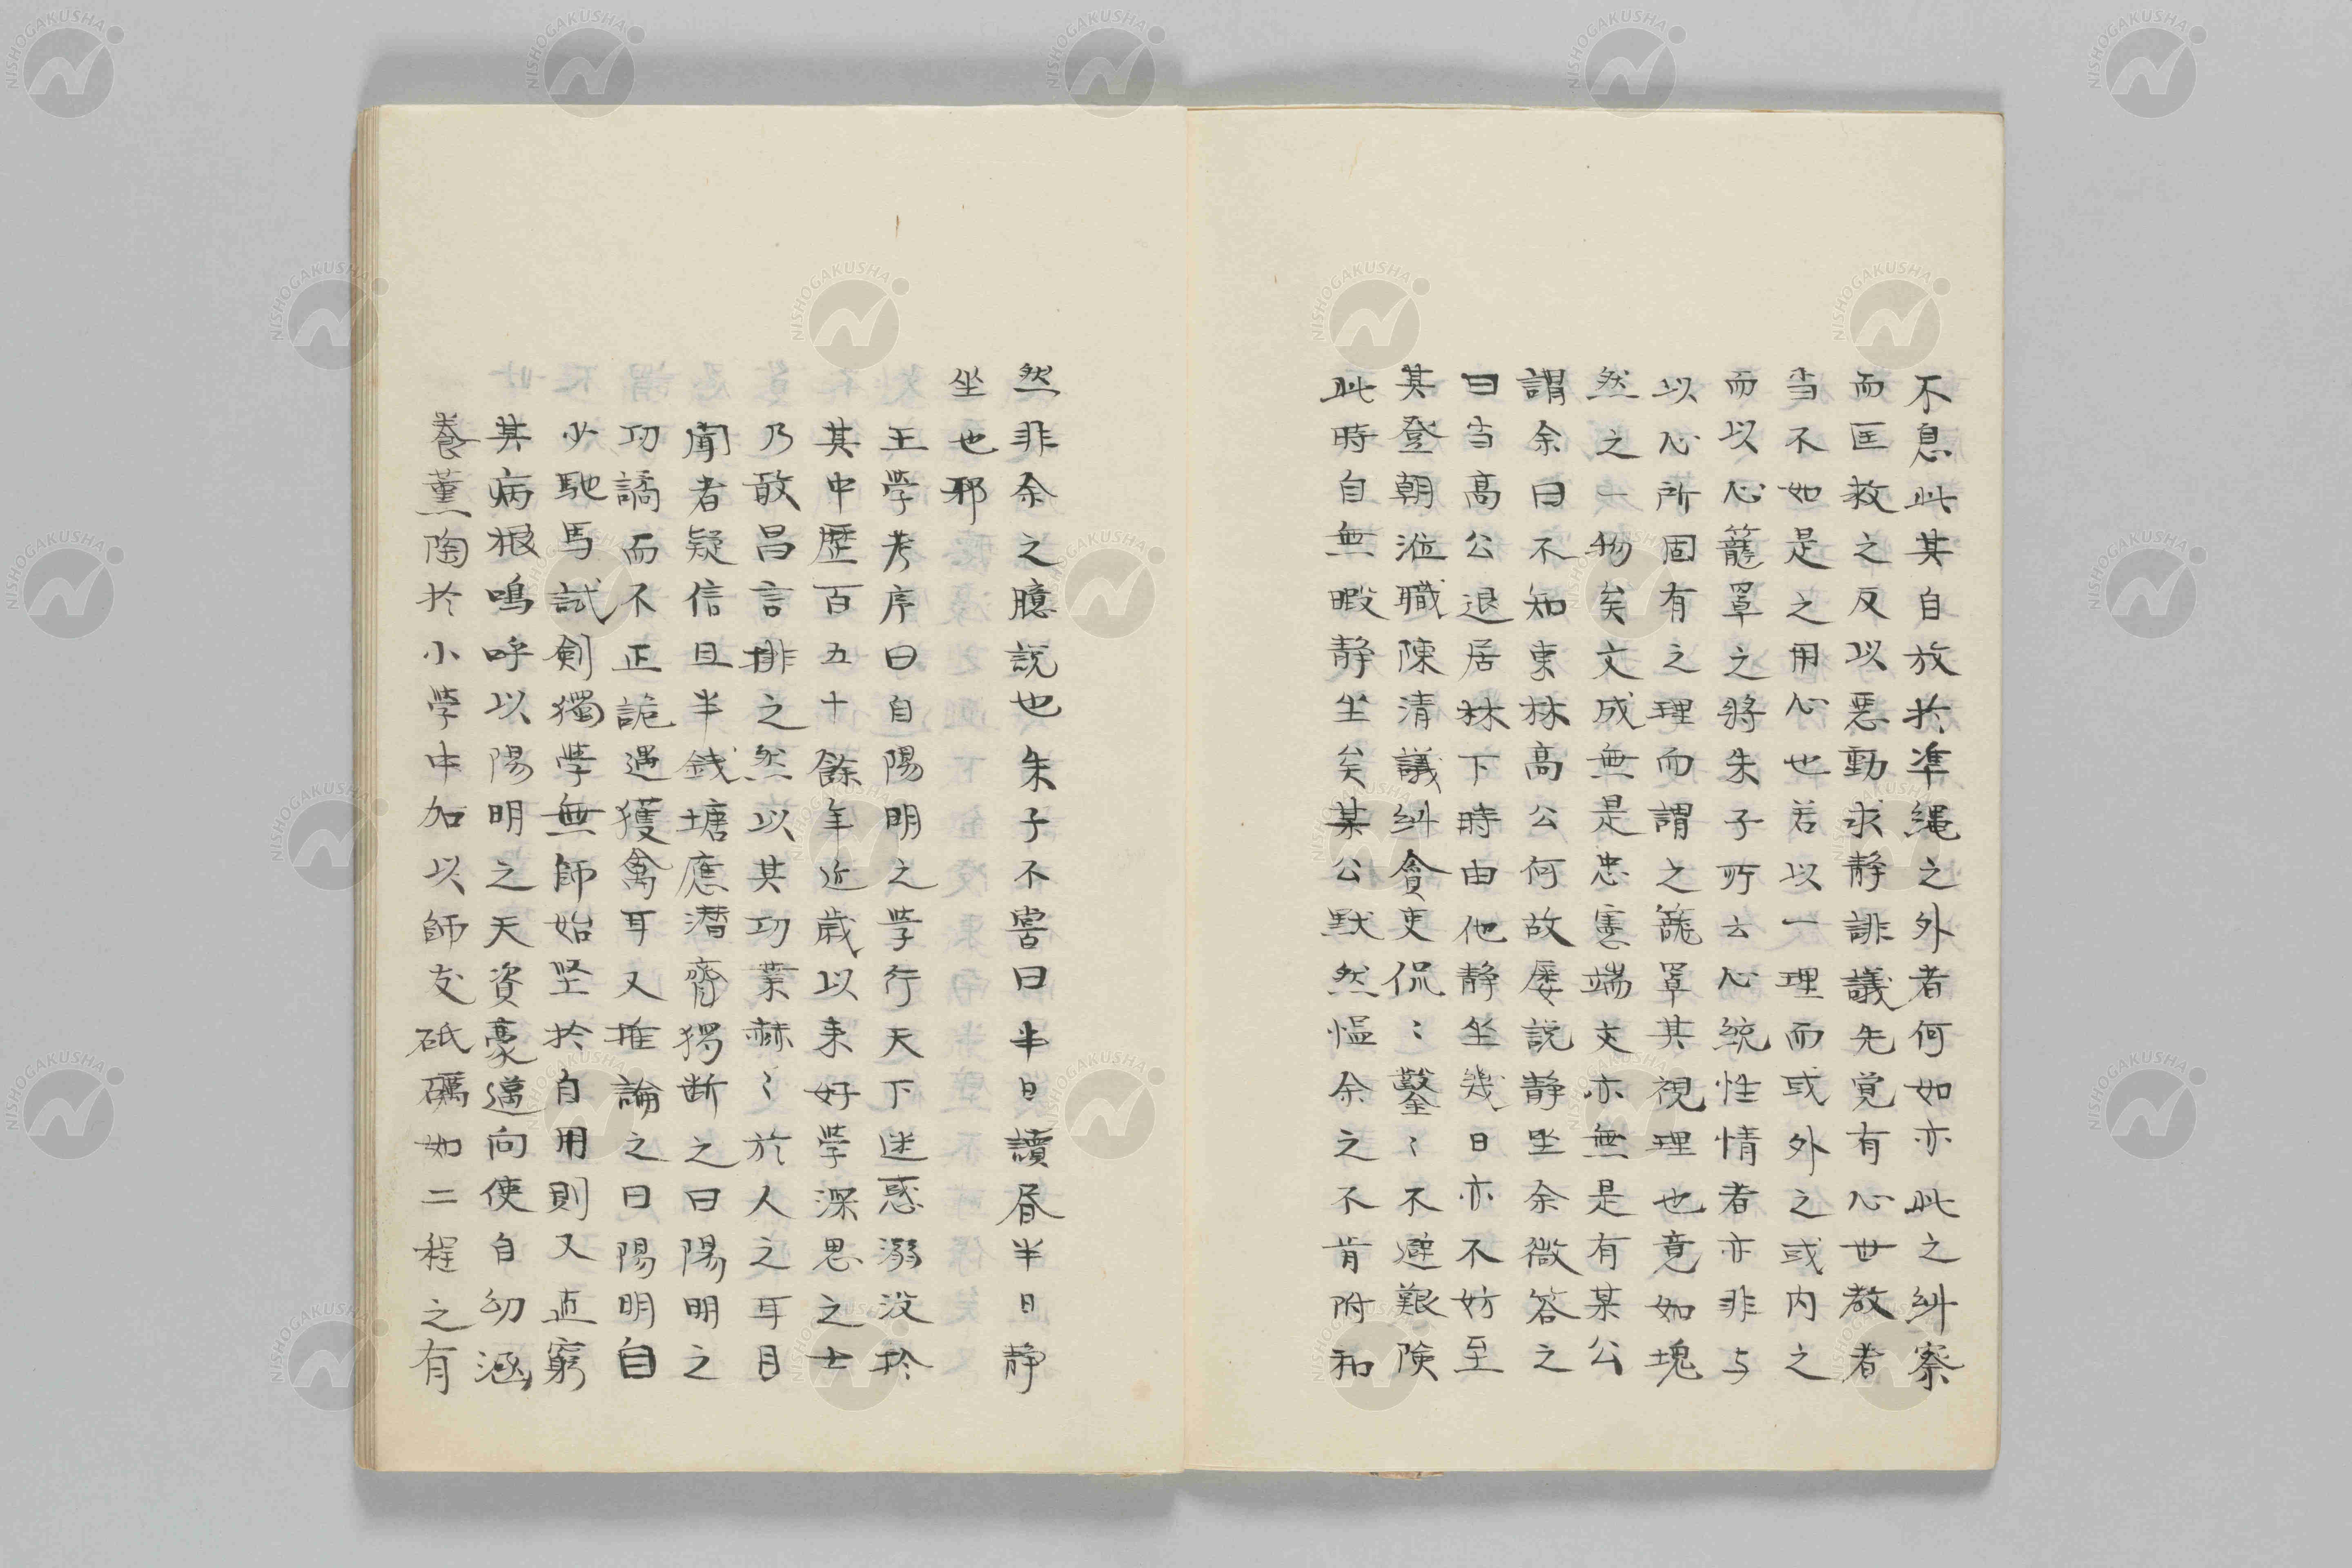 不息此其自放於準繩之外者何如亦此之糾察
而匡救之反以惡動求静誹議先覚有心世教者
当不如是之用心也若以一理而或外之或内之
而以心籠罩之將朱子所云心統性情者亦非与
以心所固有之理而謂之籠罩其視理也竟如塊
然之一物矣文成無是忠憲端文亦無是有某公
謂余曰不知東林高公何故屡説静坐余微答之
曰当高公退居林下時由他静坐幾日亦不妨至
其登朝涖職陳清議糾貪吏侃〻鑿〻不避艱険
此時自無暇静坐矣某公默然慍余之不肯附和
然非余之臆説也朱子不嘗曰半日讀書半日静
坐也邪
王学考序曰自陽明之学行天下迷惑溺没於
其中歷百五十餘年近歳以来好学深思之士
乃敢昌言排之然以其功業赫〻於人之耳目
聞者疑信且半錢塘應潜齋独断之曰陽明之
功譎而不正詭遇獲禽耳又推論之曰陽明自
少馳馬試劍獨学無師始坚於自用則又直窮
其病根嗚呼以陽明之天資豪邁向使自幼涵
養薫陶於小学中加以師友砥礪如二程之有
NISHOGAKUSHA